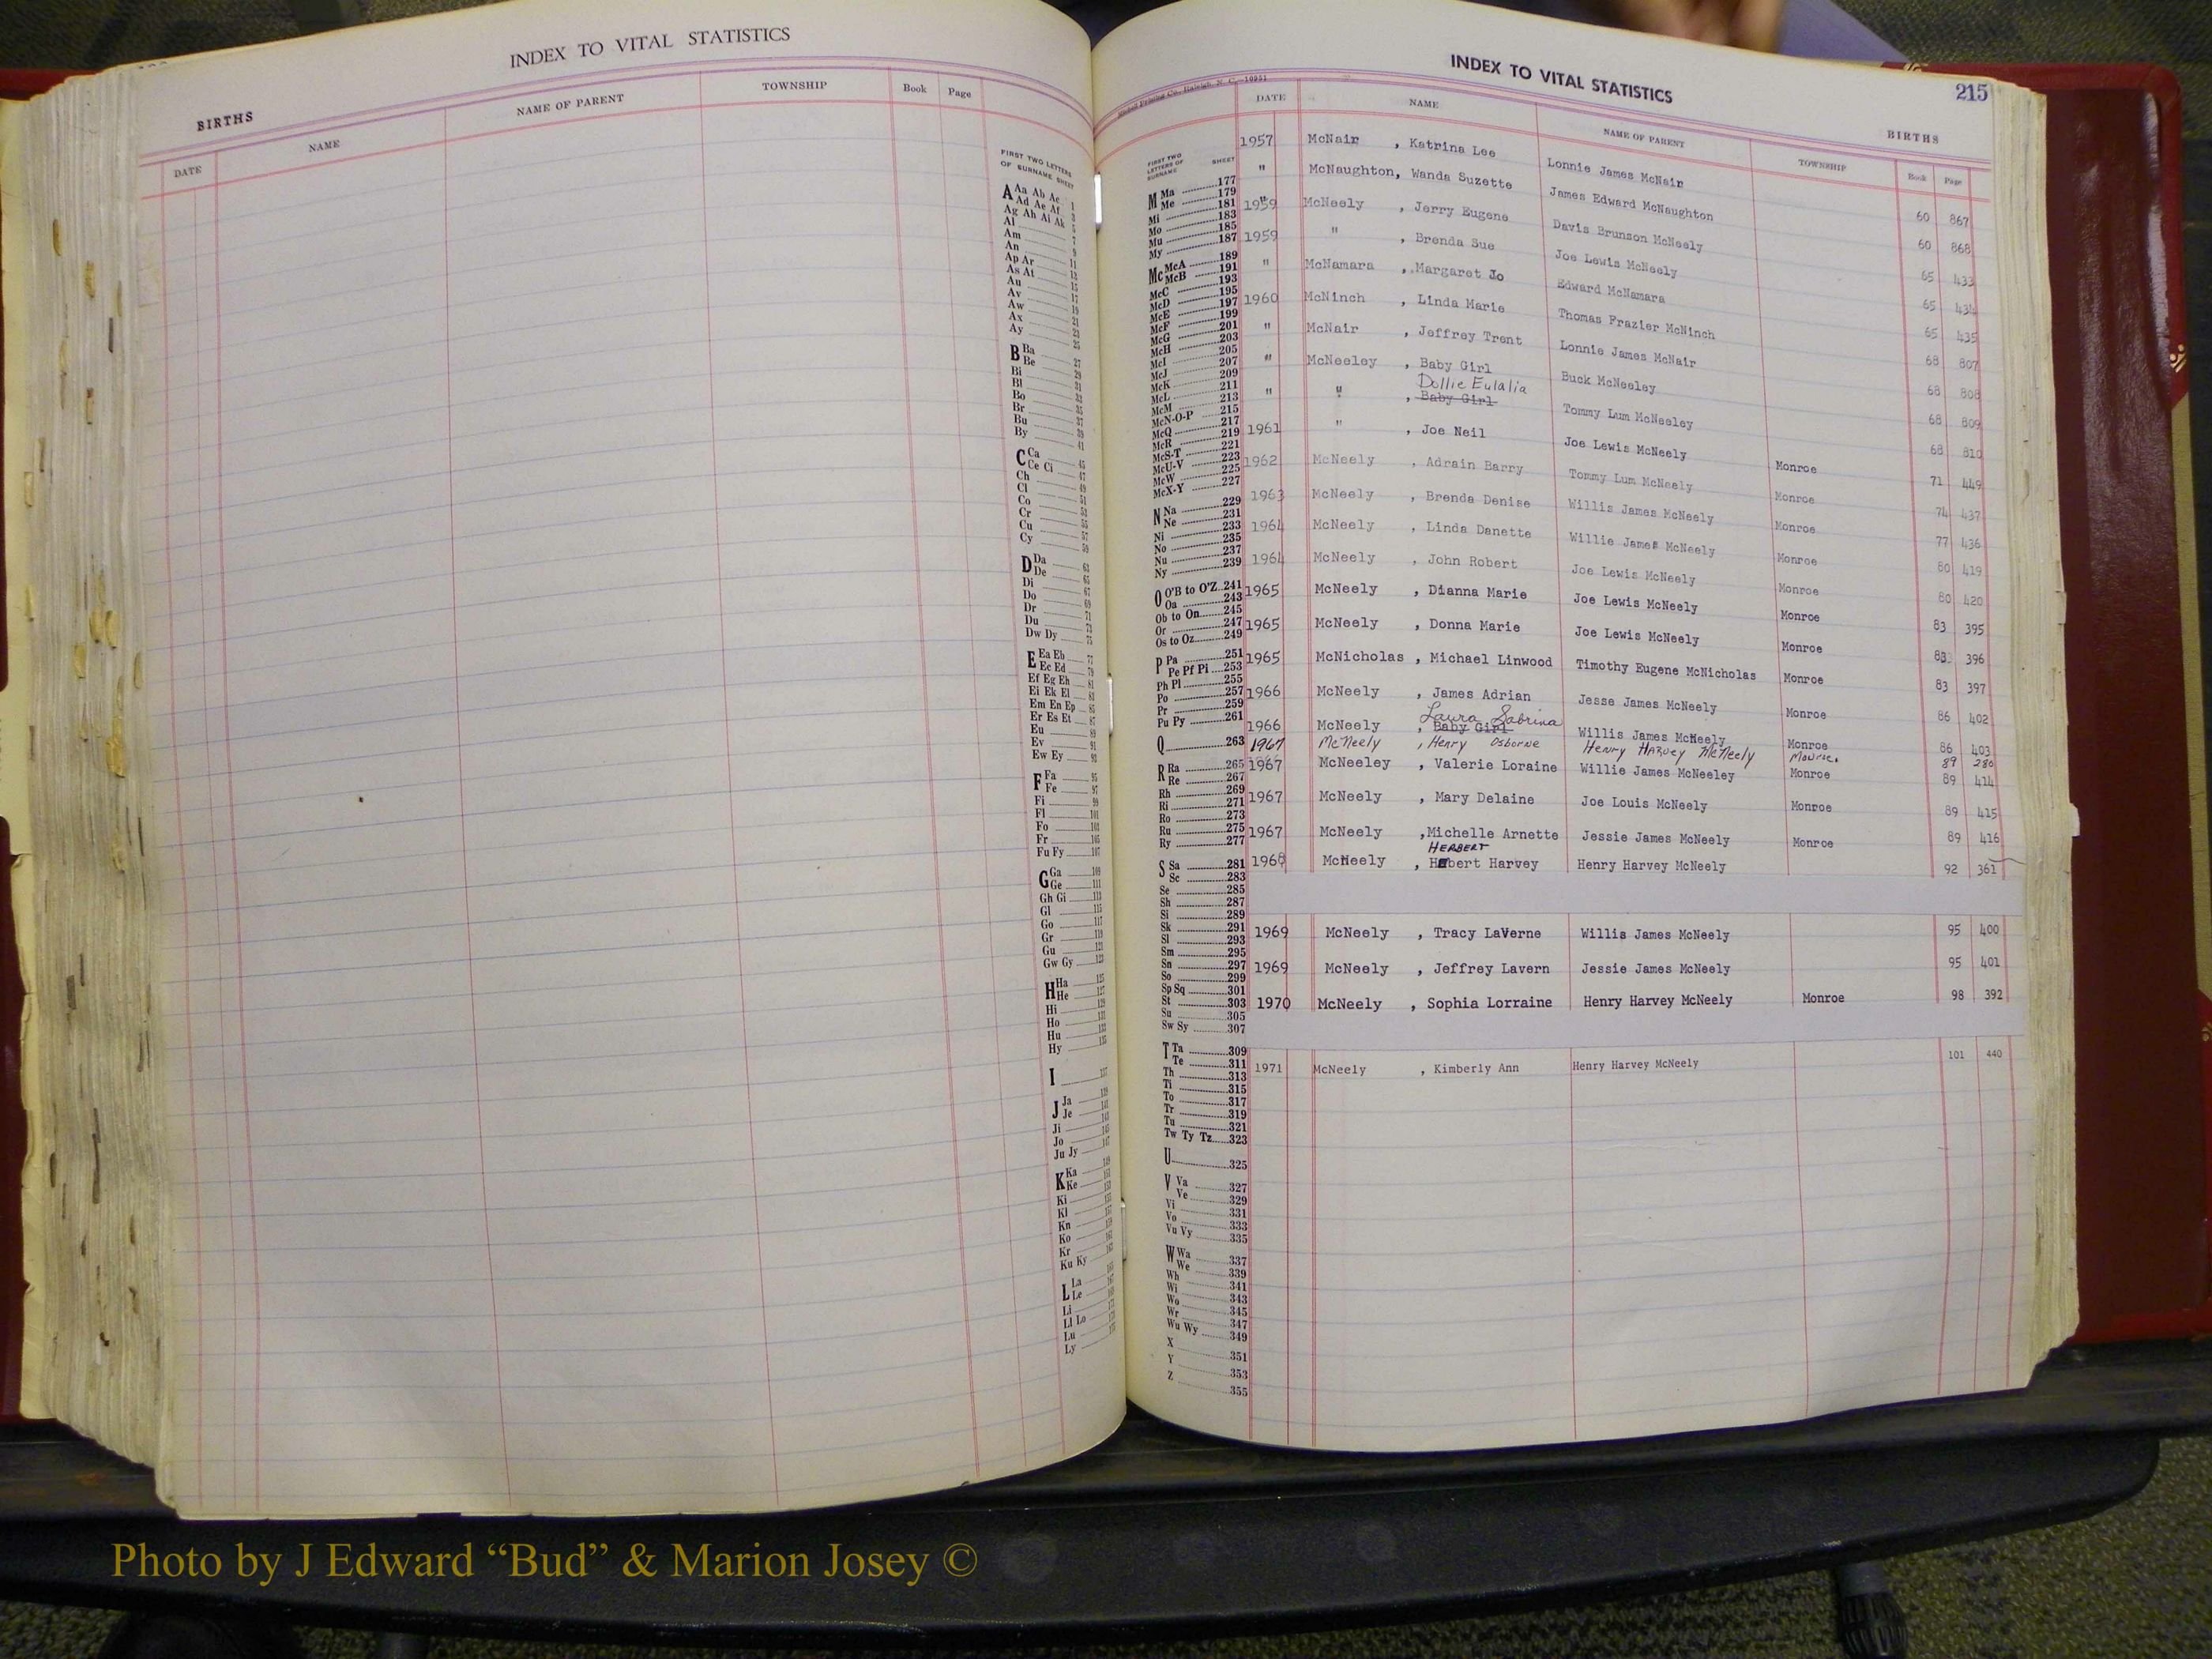 INDEX TO VITAL STATISTICS
BIRTHS
DATE NAME NAME OF PARENT TOWNSHIP Book Page
FIRST TWO LETTERS
OF SURNAME SHEET
A Aa Ab Ac 1
Ad Ae Af 3
Ag Ah Ai Ak 5
Al 7
Am 9
An 11
Ap Ar 13
As At 15
Au 17
Av 19
Aw 21
Ax 23
Ay 25
B Ba 27
Be 29
Bi 31
Bl 33
Bo 35
Br 37
Bu 39
By 41
C Ca 45
Ce Ci 47
Ch 49
Cl 51
Co 53
Cr 55
Cu 57
Cy 59
D Da 63
De 65
Di 67
Do 69
Dr 71
Du 73
Dw Dy 75
E Ea Eb 77
Ec Ed 79
Ef Eg Eh 81
Ei Ek El 83
Em En Ep 85
Er Es Et 87
Eu 89
Ev 91
Ew Ey 93
F Fa 95
Fe 97
Fi 99
Fl 101
Fo 103
Fr 105
Fu Fy 107
G Ga 109
Ge 111
Gh Gi 113
Gl 115
Go 117
Gr 119
Gu 121
Gw Gy 123
H Ha 125
He 127
Hi 129
Ho 131
Hu 133
Hy 135
I 137
J Ja 139
Je 141
Ji 143
Jo 145
Ju Jy 147
K Ka 149
Ke
Ki
Kl
Kn
Ko
Kr
Ku Ky
L La
Le
Li
Ll Lo
Lu
Ly
INDEX TO VITAL STATISTICS 215
BIRTHS
DATE NAME NAME OF PARENT TOWNSHIP Book Page
FIRST TWO
LETTERS OF
SURNAME SHEET
M Ma 177
Me 179
Mi 181
Mo 183
Mu 185
My 187
Mc McA 189
McB 191
McC 193
McD 195
McE 197
McF 199
McG 201
McH 203
McI 205
McJ 207
McK 209
McL 211
McM 213
McN-O-P 215
McQ 217
McR 219
McS-T 221
McU-V 223
McW 225
McX-Y 227
N Na 229
Ne 231
Ni 233
No 235
Nu 237
Ny 239
O O'B to O'Z 241
Oa 243
Ob to On 245
Or 247
Os to Oz 249
P Pa 251
Pe Pf Pi 253
Ph Pl 255
Po 257
Pr 259
Pu Py 261
Q 263
R Ra 265
Re 267
Rh 269
Ri 271
Ro 273
Ru 275
Ry 277
S Sa 281
Sc 283
Se 285
Sh 287
Si 289
Sk 291
Sl 293
Sm 295
Sn 297
So 299
Sp Sq 301
St 303
Su 305
Sw Sy 307
T Ta 309
Te 311
Th 313
Ti 315
To 317
Tr 319
Tu 321
Tw Ty Tz 323
U 325
V Va 327
Ve 329
Vi 331
Vo 333
Vu Vy 335
W Wa 337
We 339
Wh 341
Wi 343
Wo 345
Wr 347
Wu Wy 349
X 351
Y 353
Z 355
1957 McNair , Katrina Lee Lonnie James McNair 60 867
" McNaughton, Wanda Suzette James Edward McNaughton 60 868
1959 McNeely , Jerry Eugene Davis Brunson McNeely 65 433
1959 " , Brenda Sue Joe Lewis McNeely 65 434
" McNamara , Margaret Jo Edward McNamara 65 435
1960 McNinch , Linda Marie Thomas Frazier McNinch 68 807
" McNair , Jeffrey Trent Lonnie James McNair 68 808
" McNeeley , Baby Girl Buck McNeeley 68 809
Dollie Eulalia
" " , Baby Girl Tommy Lum McNeeley 68 810
1961 " , Joe Neil Joe Lewis McNeely Monroe 71 449
1962 McNeely , Adrain Barry Tommy Lum McNeely Monroe 74 437
1963 McNeely , Brenda Denise Willis James McNeely Monroe 77 436
1964 McNeely , Linda Danette Willie James McNeely Monroe 80 419
1964 McNeely , John Robert Joe Lewis McNeely Monroe 80 420
1965 McNeely , Dianna Marie Joe Lewis McNeely Monroe 83 395
1965 McNeely , Donna Marie Joe Lewis McNeely Monroe 83 396
1965 McNicholas , Michael Linwood Timothy Eugene McNicholas Monroe 83 397
1966 McNeely , James Adrian Jesse James McNeely Monroe 86 402
Laura Sabrina
1966 McNeely , Baby Girl Willis James McNeely Monroe 86 403
1967 McNeely , Henry Osborne Henry Harvey McNeely Monroe 89 280
1967 McNeeley , Valerie Loraine Willie James McNeeley Monroe 89 414
1967 McNeely , Mary Delaine Joe Louis McNeely Monroe 89 415
1967 McNeely ,Michelle Arnette Jessie James McNeely Monroe 89 416
HERBERT
1968 McNeely , Hebert Harvey Henry Harvey McNeely 92 361
1969 McNeely , Tracy LaVerne Willis James McNeely 95 400
1969 McNeely , Jeffrey Lavern Jessie James McNeely 95 401
1970 McNeely , Sophia Lorraine Henry Harvey McNeely Monroe 98 392
1971 McNeely , Kimberly Ann Henry Harvey McNeely 101 440
Photo by J Edward “Bud” & Marion Josey ©